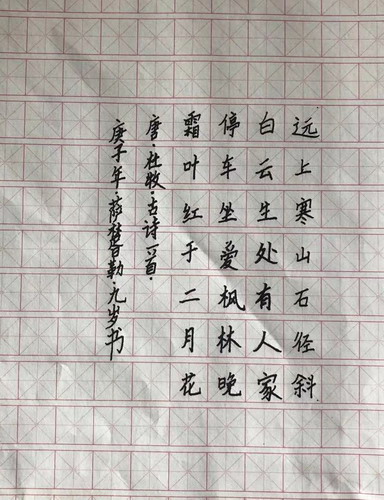 远上寒山石径斜
白云生处有人家
停车坐爱枫林晚
霜叶红于二月花
唐·杜牧·古诗一首·
庚子年·萨楚勒·九岁书